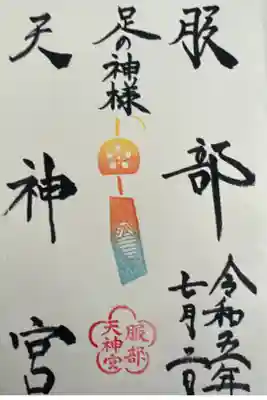 服部
令和五年
七月二日
足の神様
天神宮
服部
天神宮